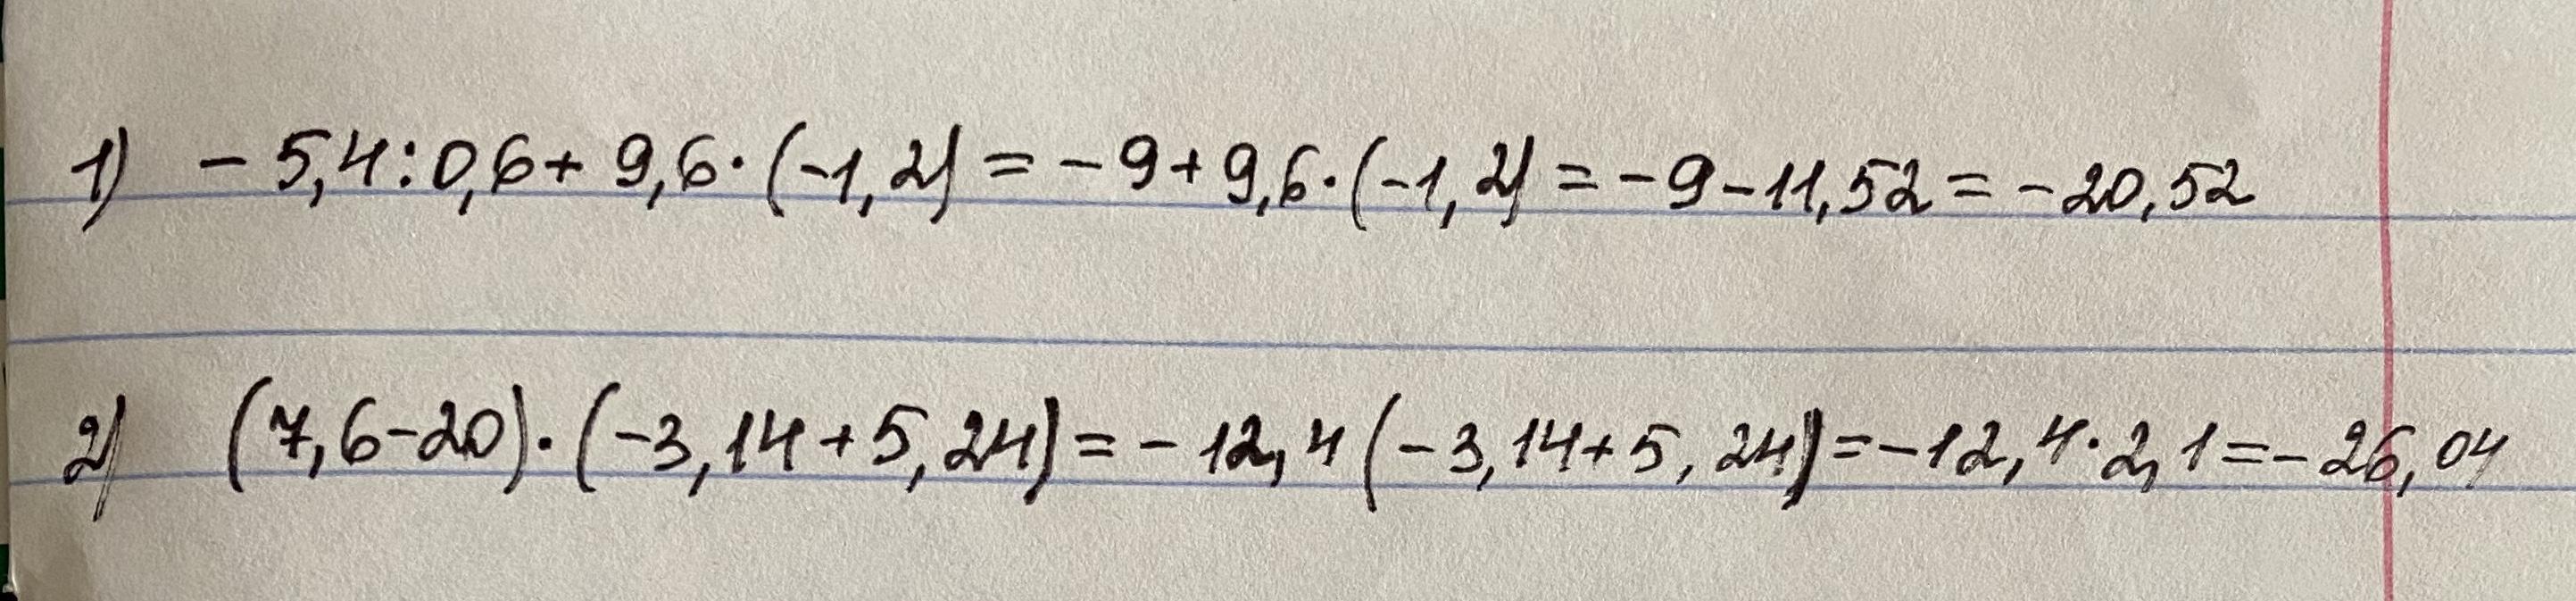 1) - 5,4:0,6+ 9,6·(-1,2) = -9+9,6·(-1,2) = -9-11,52 = -20,52
2) (7,6-20)·(-3,14+5,24)=-12,4(-3,14+5,24)=-12,4·2,1=-26,04